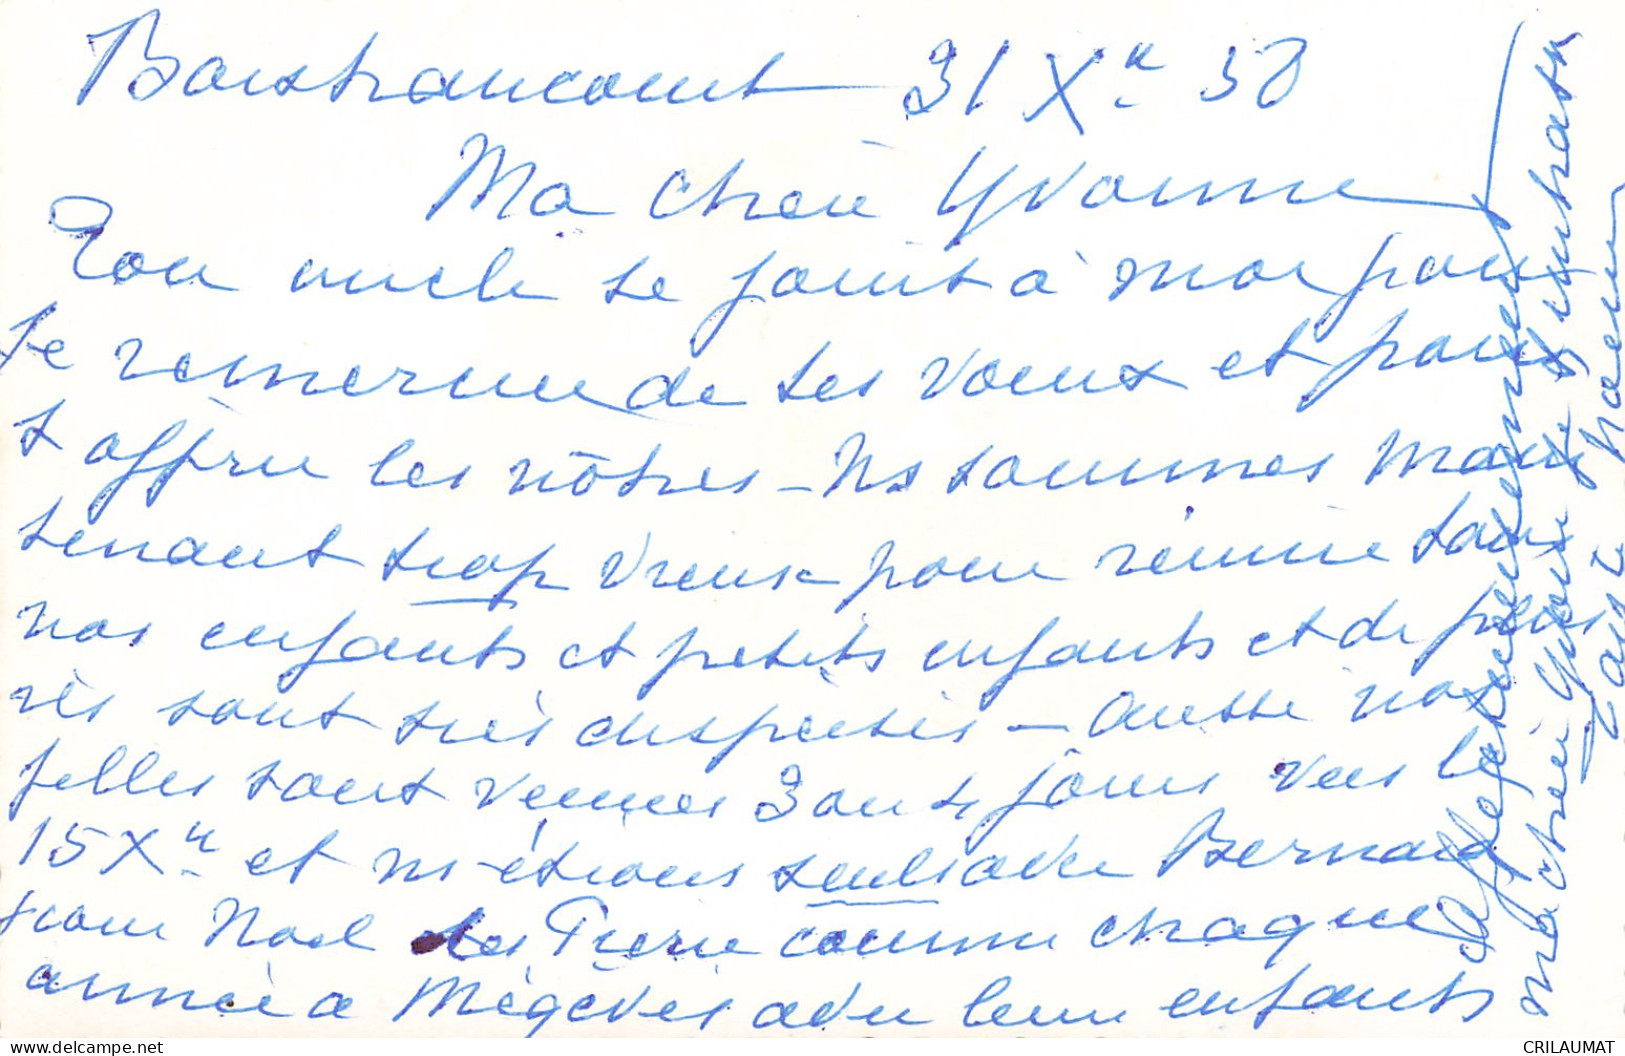 Boistrancourt 31 Xre 58
Ma chère Yvonne
Ton oncle se joint à moi pour
te remercier de tes vœux et pour
t'offrir les nôtres - Ns sommes main
tenant trop vieux pour réunir tous
nos enfants et petits enfants et de plus
ils sont très dispersés - Aussi nos
filles sont venues 3 ou 4 jours vers le
15 Xre et ns étions seuls avec Bernard
pour Noël les Pierre comme chaque
année à Megèves avec leurs enfants
affectueusement
ma chère Yvonne je t'embrasse
Tante
CRILAUMAT